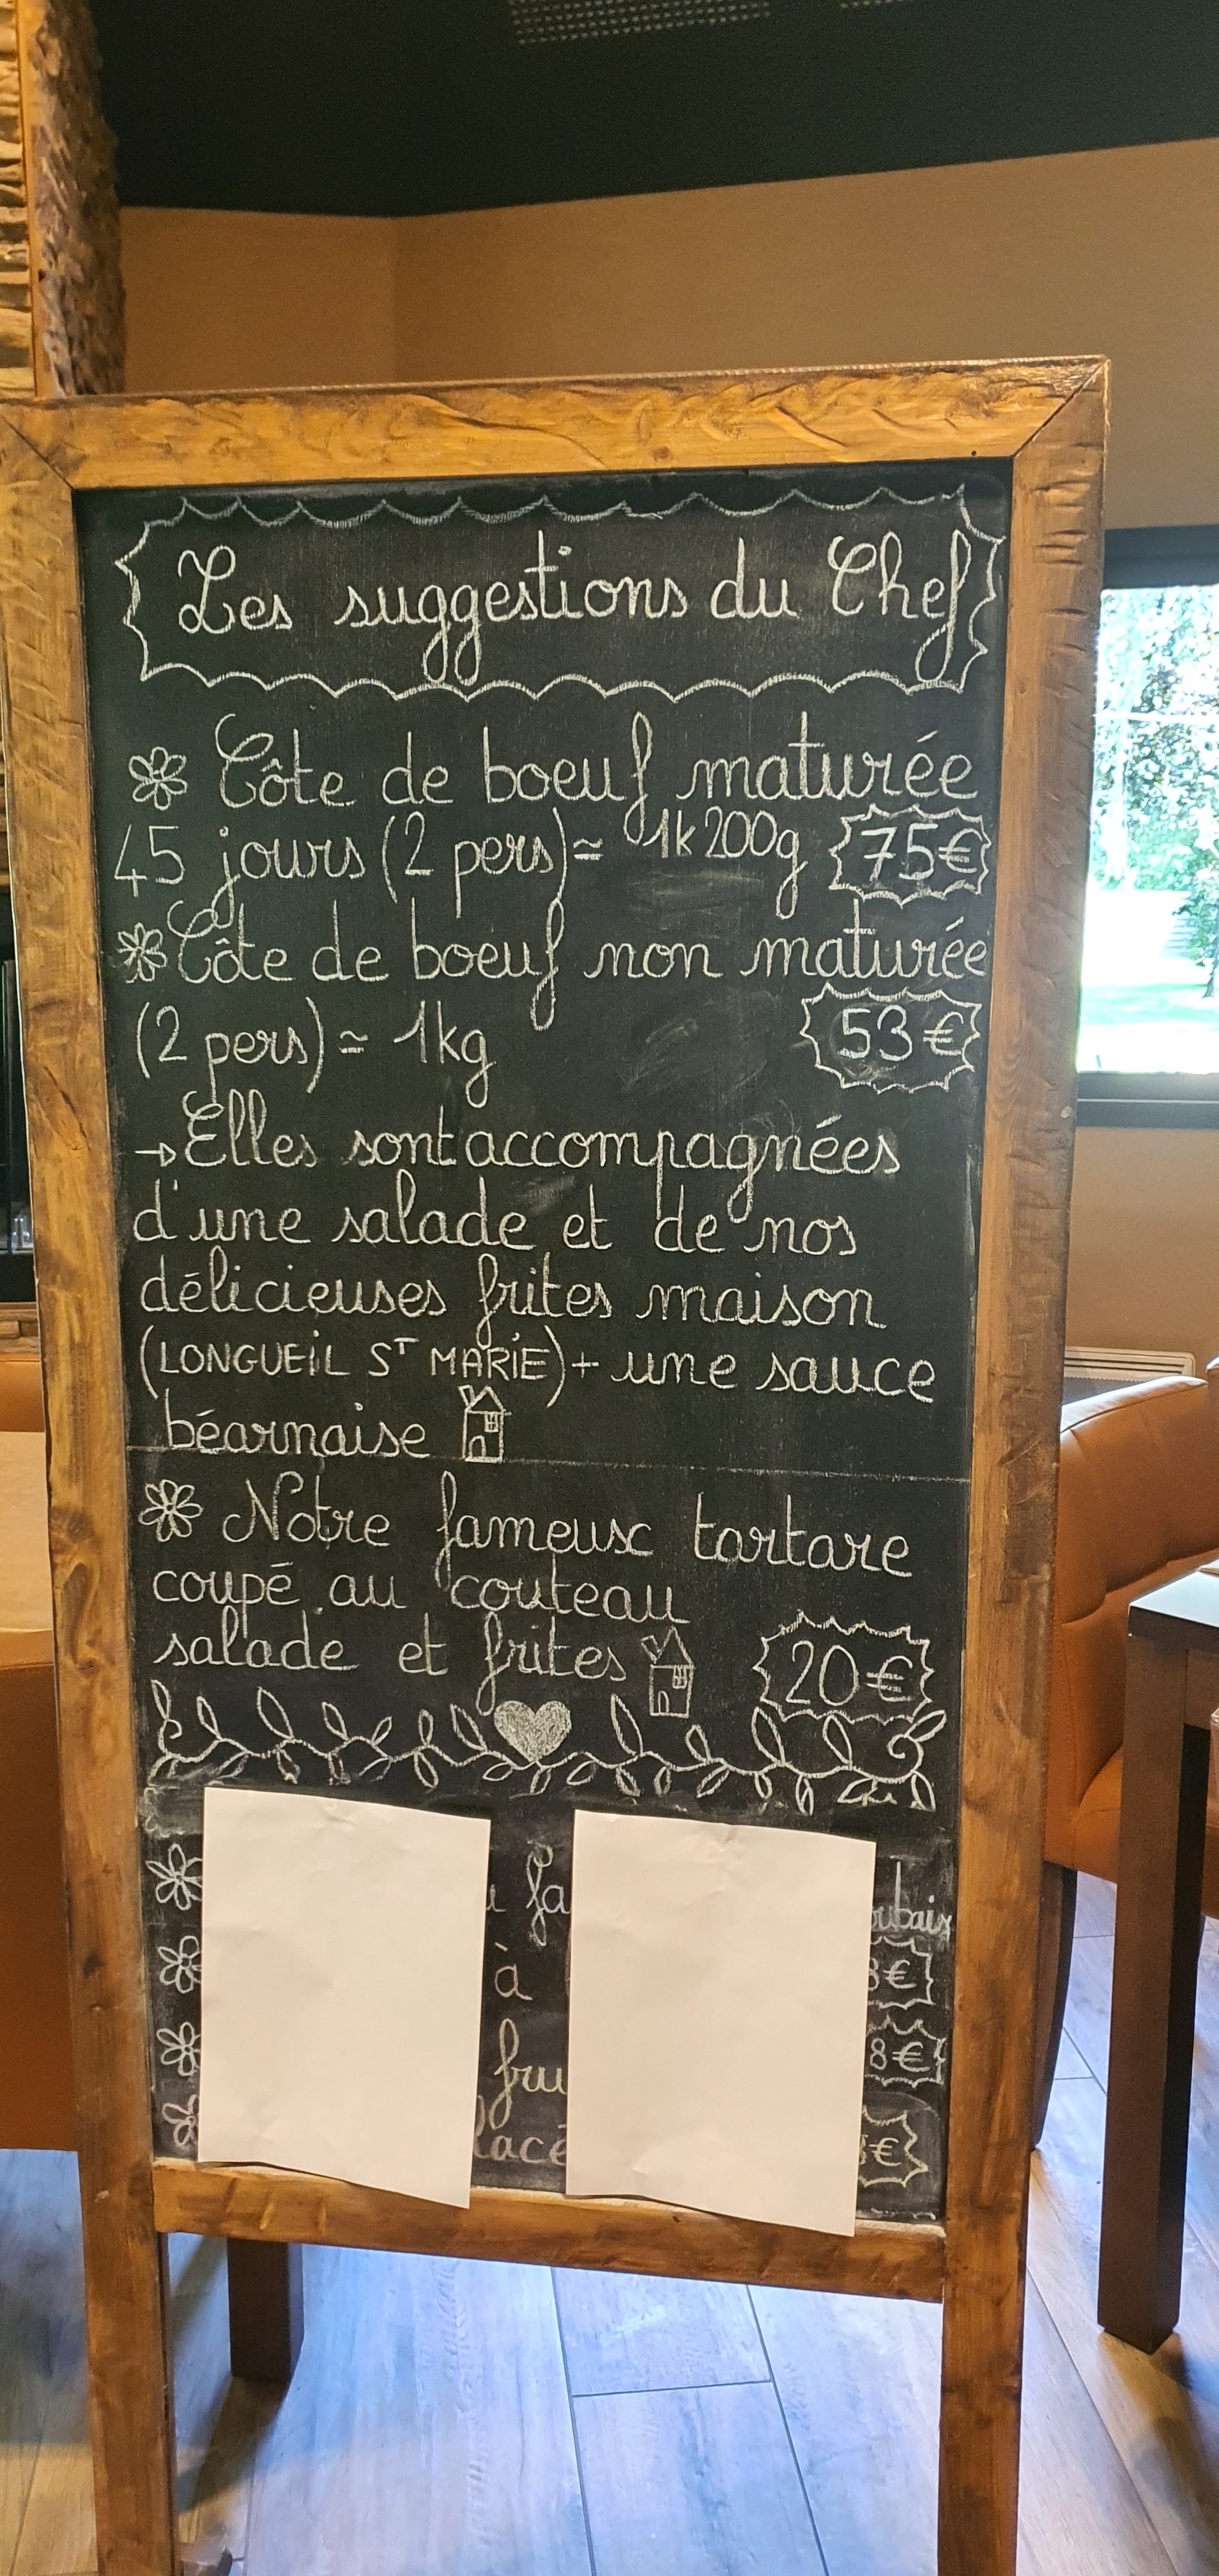 Les suggestions du Chef
Côte de boeuf maturée
45 jours (2 pers) ≃ 1k200g 75€
Côte de boeuf non maturée
(2 pers) ≃ 1kg 53€
→ Elles sont accompagnées
d'une salade et de nos
délicieuses frites maison
(LONGUEIL ST MARIE) + une sauce
béarnaise
Notre fameux tartare
coupé au couteau
salade et frites 20€
à
8€